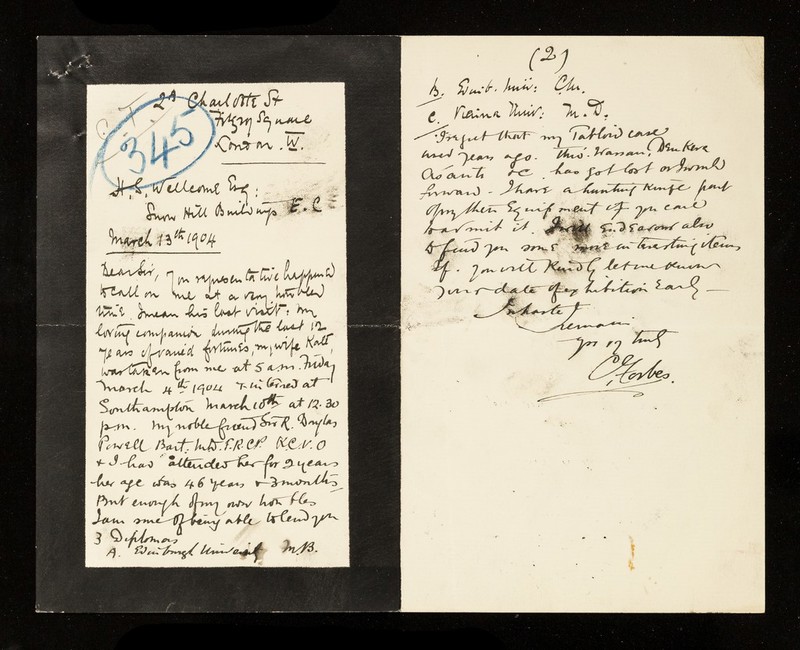 29 Charlotte St
Fitzroy Square
London. W.
345
H. S. Wellcome Esq:
Snow Hill Buildings E. C
March 13th 1904
Dear Sir, your representative happened
to call on me at a very troubled
time. I mean his last visit: my
loving companion during the last 12
years of varied fortunes, my wife Kate,
was taken from me at 5 am. Friday
March 4th 1904 & interred at
Southampton March 10th at 12.30
pm. My noble friend Sir R. Douglas
Powell Bart. M.D. F.R.C.P. K.C.V.O
& I had attended her for 2 years
her age was 46 years & 3 months
But enough of my own troubles
I am sure of being able to lend you
3 Diplomas
A. Edinburgh University M.B.
(2)
B. Edinb. Univ: C.M.
C. Vienna Univ: M.D.
I regret that my Tabloid case
used years ago. thro' Wassau, Denkera
Asanti &c. has got lost or I would
forward. I have a hunting knife part
of my then Equipment if you care
to exhibit it. I will endeavour also
to find you some more interesting items
if you will kindly let me know
your date of exhibition Early —
In haste I
remain
yrs vy truly
Forbes.